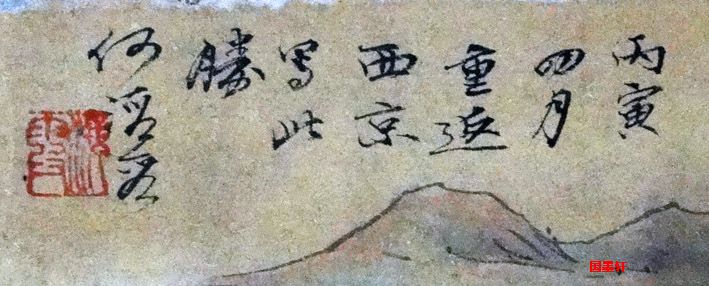 丙寅
四月
重返
西京
写此
勝
何海霞
国墨轩